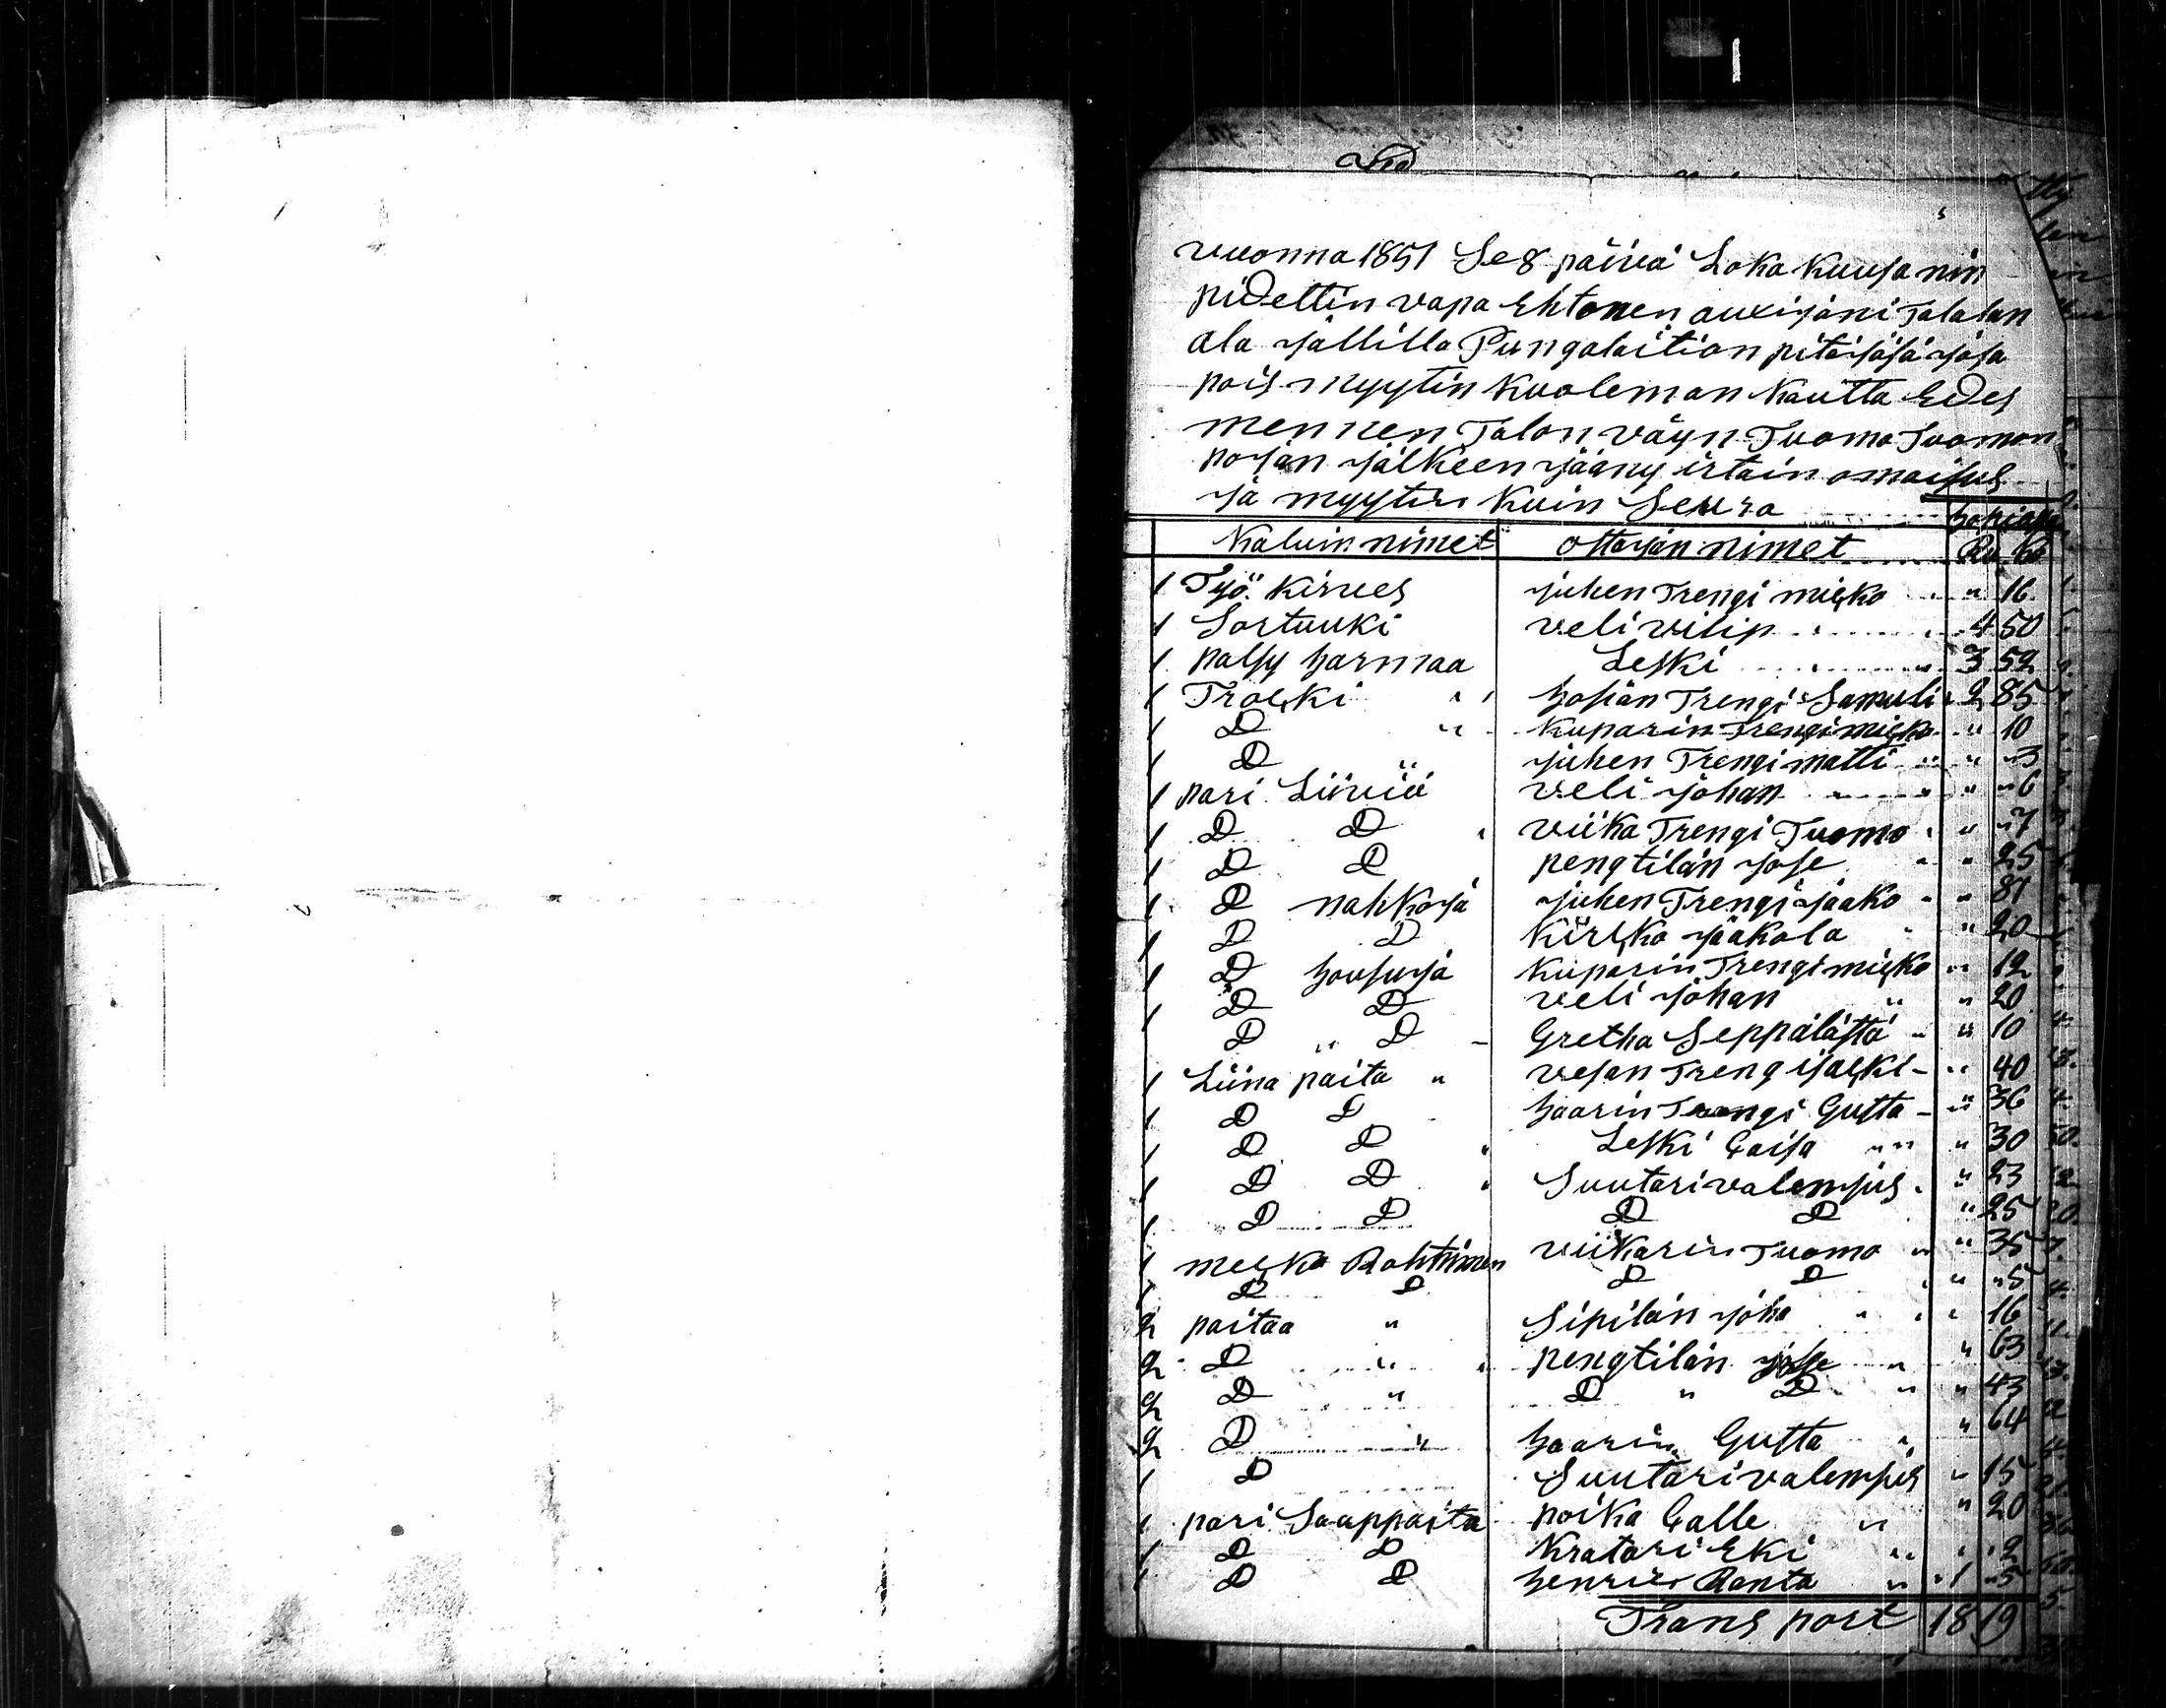 vuonna 1851 Se 8 päivä Loka Kuusa nin
pidettin vapa Ehtonen auxisjoni Talalan
ala jällillä Pungalaition pitäjäsä josa
pois myytin Kuoleman Kautta Edes
mennen Talon väyn Tuomo Tuomon
pojan jälkeen jääny irtain omaisus
ja myytin Kuin Seura
Kaluin nimet ottajan nimet Ru Ko
1 Työ Kirves juhen Trengi misko " 16
1 Sortuuki veli vilip 4 50
1 palsy harmaa Leski 3 52
1 Troiski hosian Trengi Samuli 2 85
1 D " Kuparin Trengi misko " 10
1 D " juhen Trengi matti " " 3
1 pari Liiviä veli johan " " 6
1 D D viika Trengi Tuomo " " 7
1 D D pengtilän jose " 25
1 D nahkoja juhen Trengi jaako " 81
1 D D Kirsko jaakola " 20
1 D housuja Kuparin Trengi misko " 12
1 D D veli johan " 20
1 D " D Gretha Seppälästä " 10
1 Liina paita " vesan Trengi jaski " 40
1 D D haarin Trengi Gusta " 36
1 D D Leski Caisa " 30
1 D D Suutari valenjus " 23
1 D D D D " 25
1 mesko Rohtiminen viikarin Tuomo " 35
1 D D D D " " 5
2 paitaa " Sipilän joha " 16
2 D " pengtilän jose " 63
2 D " D " D " 43
2 D " haarin Gusta " 64
1 D Suutari valenjus " 15
1 pari Saappaita poika Calle " 20
1 D D Kratari Eki " " 2
1 D D henrir Ranta " 1 " 5
Trans port 18 19